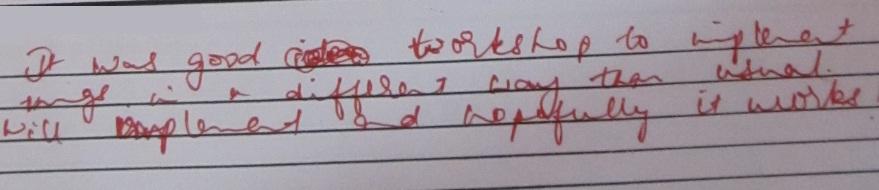 It was good workshop to implement
things in a different way than usual.
will implement and hopefully it works